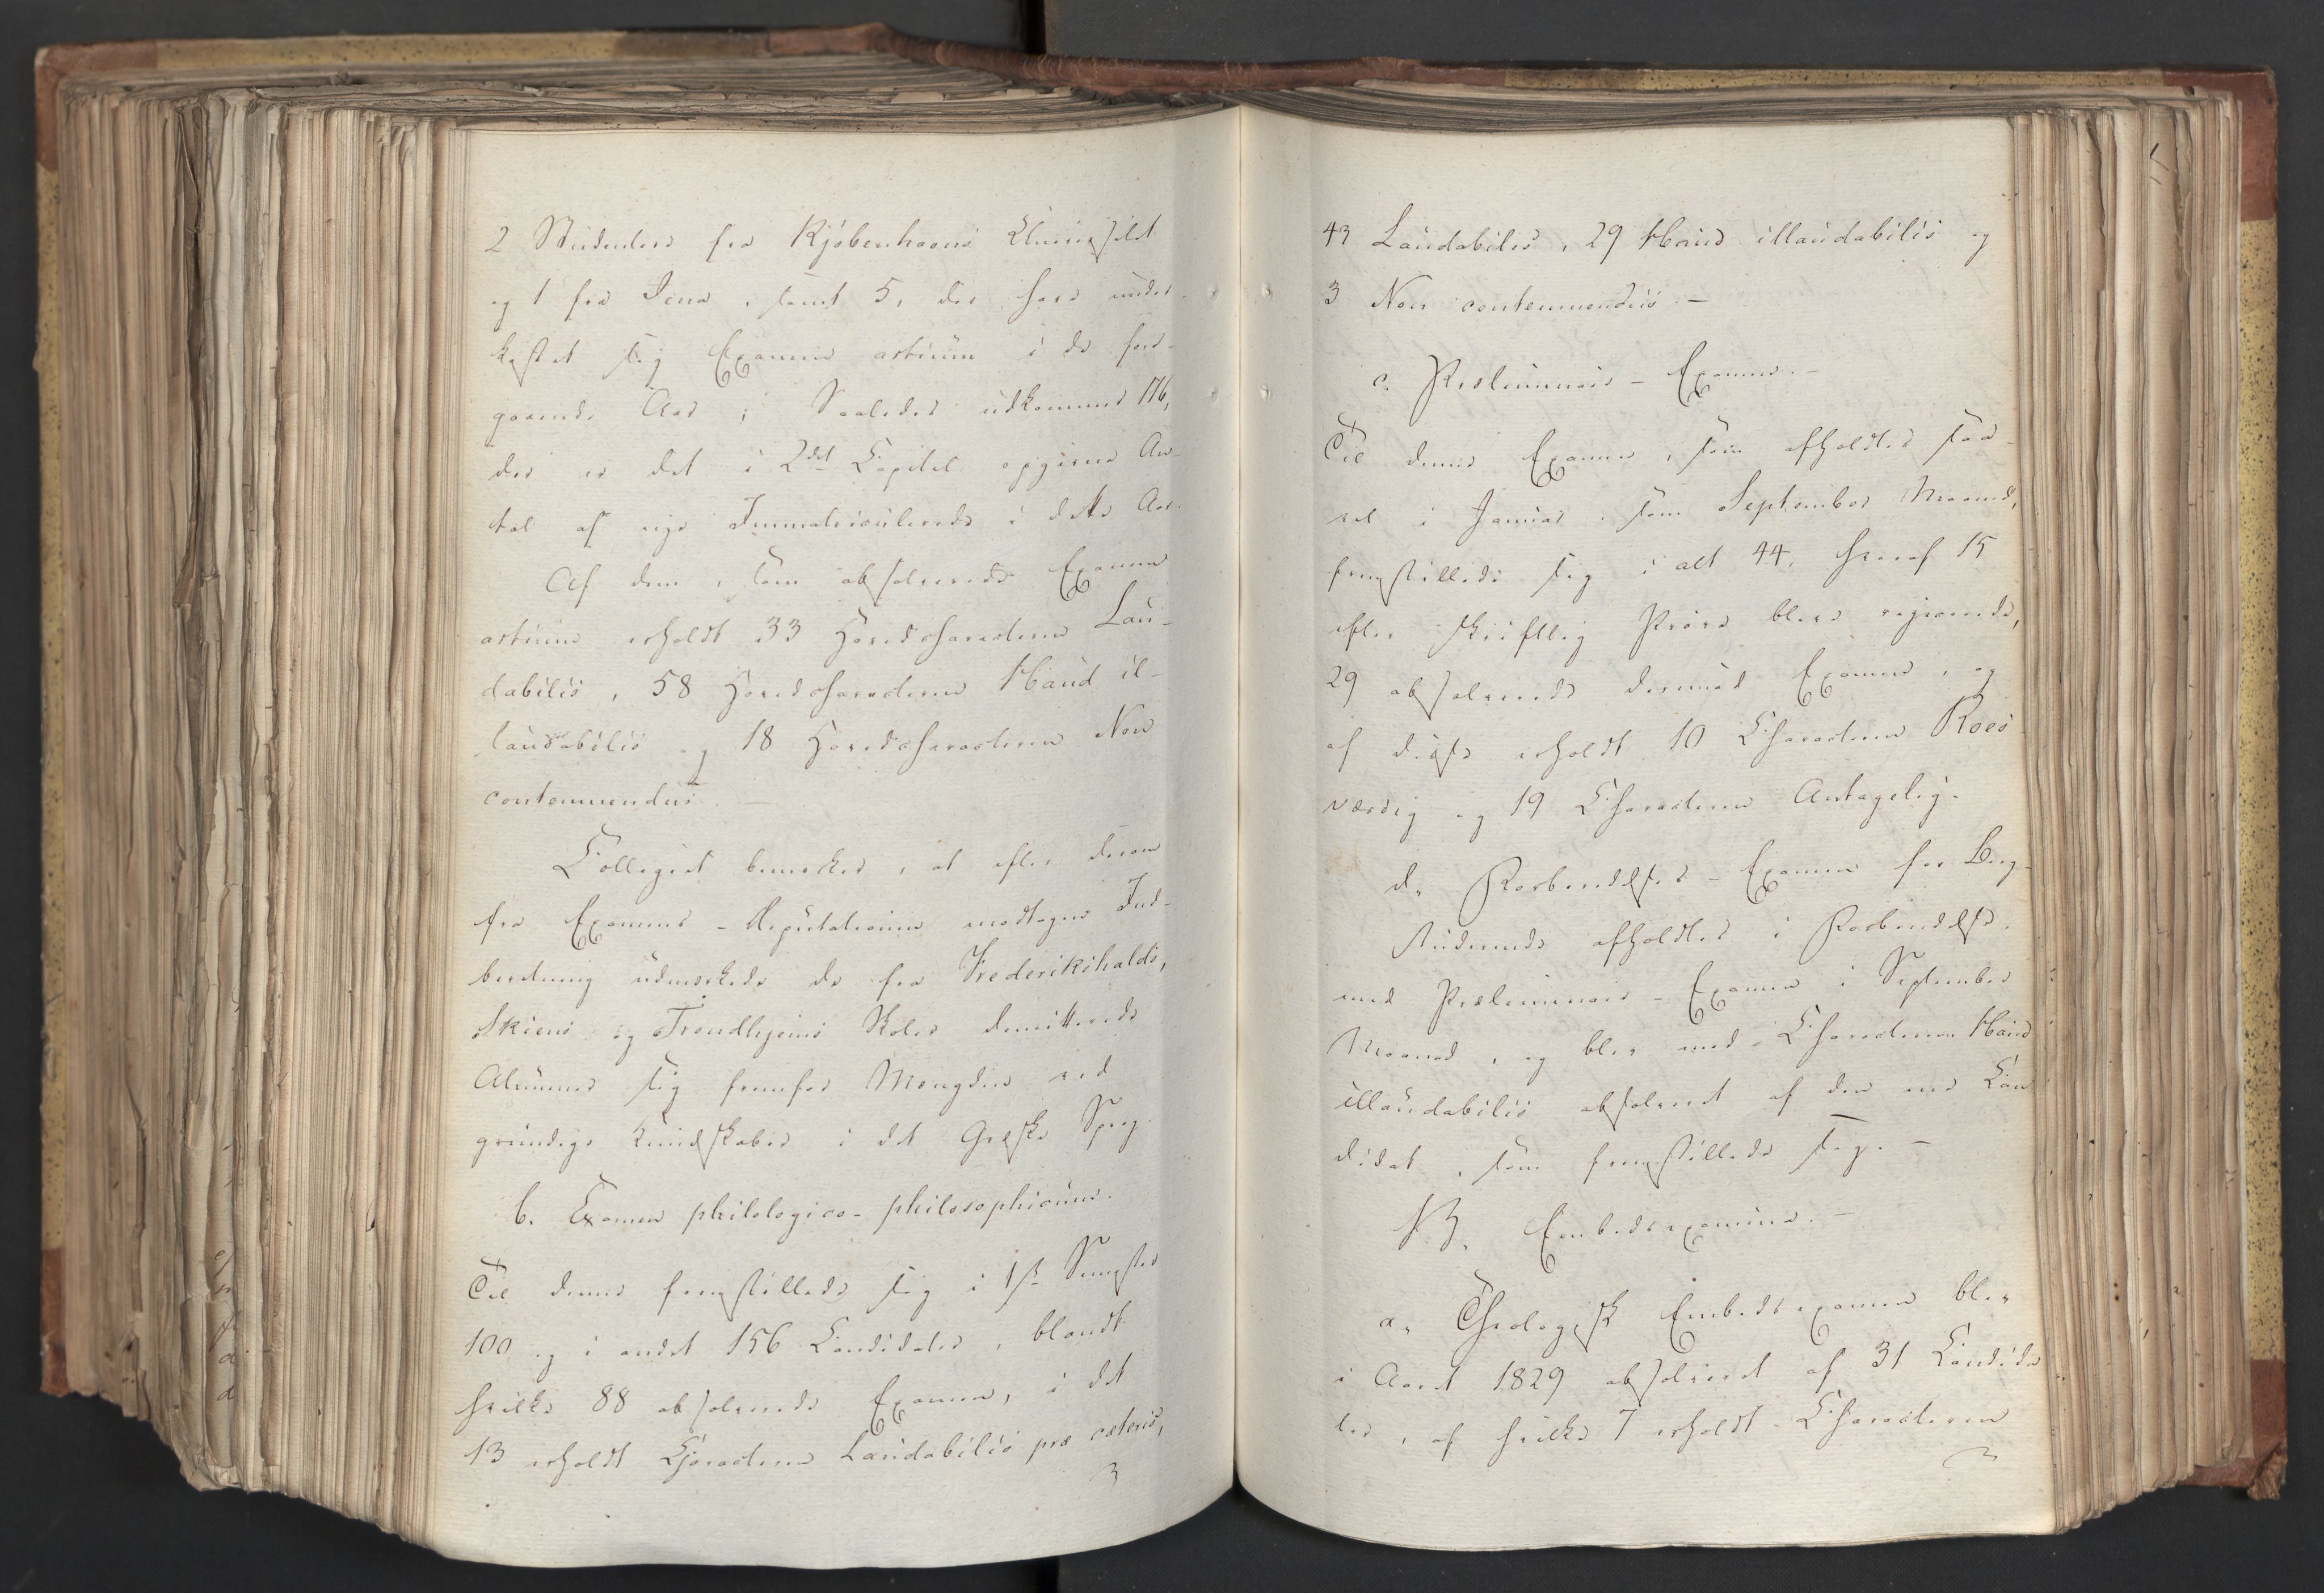 2 Studenter fra Kjöbenhavns Universitet
og 1 fra Jena, samt 5, der have under-
kastet sig Examen artium i de fore-
gaaende Aar; Saaledes udkommer 116,
der er det i 2det Capitel opgivne An-
tal af nye Immatriculerede i dette Aar.
Af dem, som absolverede Examen
artium erholdt 33 Hovedcharacteren Lau-
dabilis, 58 Hovedcharacteren Haud il-
laudabilis og 18 Hovedcharacteren Non
contemnendus. —
Collegiet bemærker, at efter derom
fra Examens-Deputationen modtagen Ind-
beretning udmærkede de fra Frederikshalds,
Skiens og Trondhjems Skoler demitterede
Alumner sig fremfor Mængden ved
grundige Kundskaber i det Græske Sprog.
b. Examen philologico-philosophicum.
Til denne fremstillede sig i 1ste Semester
100 og i andet 156 Candidater, blandt
hvilke 88 absolverede Examen, i det
13 erholdt Characteren Laudabilis præ ceteris,
43 Laudabilis, 29 Haud illaudabilis og
3 Non contemnendus. —
c. Præliminair-Examen. —
Til denne Examen, som afholdtes saa-
vel i Januar som September Maaned,
fremstillede sig i alt 44, hvoraf 15
efter skriftlig Prøve bleve rejicerede,
29 absolverede derimod Examen, og
af disse erholdt 10 Characteren Roes
værdig og 19 Characteren Antagelig.
d. Forberedelses-Examen for Berg-
studerende afholdtes i Forbindelse
med Præliminair-Examen i September
Maaned, og blev med Characteren Haud
illaudabilis absolveret af den ene Can
didat, som fremstillede sig. —
B. Embedsexamina. —
a. Theologisk Embedsexamen blev
i Aaret 1829 absolveret af 31 Candida
ter, af hvilke 7 erholdt Characteren